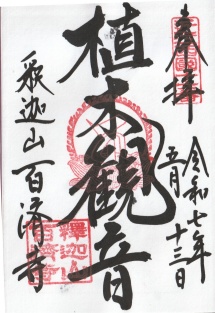 奉拝
令和七年
五月十三日
植木観音
釈迦山百済寺
釋迦山
百濟寺